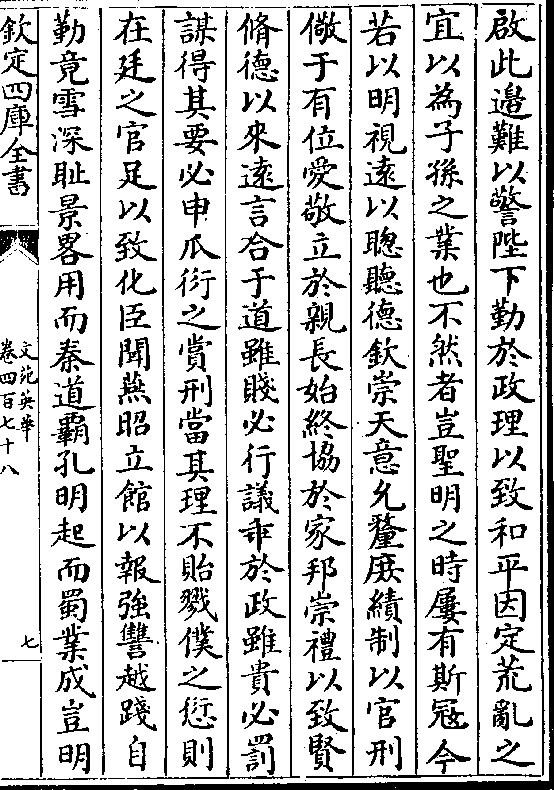 啟此邉難以警陛下勤於政理以致和平因定荒亂之
宜以為子孫之業也不然者豈聖明之時屢有斯冦今
若以明視遠以聰聽德欽崇天意允釐庶績制以官刑
儆于有位愛敬立於親長始終協於家邦崇禮以致賢
脩德以來逺言合于道雖賤必行議乖於政雖貴必罰
謀得其要必申爪衍之賞刑當其理不貽戮僕之愆則
在廷之官足以致化臣聞燕昭立館以報強讐越踐自
勤竟雪深耻景畧用而秦道霸孔明起而蜀業成豈明
欽定四庫全書
文苑英華
卷四百七十八
七